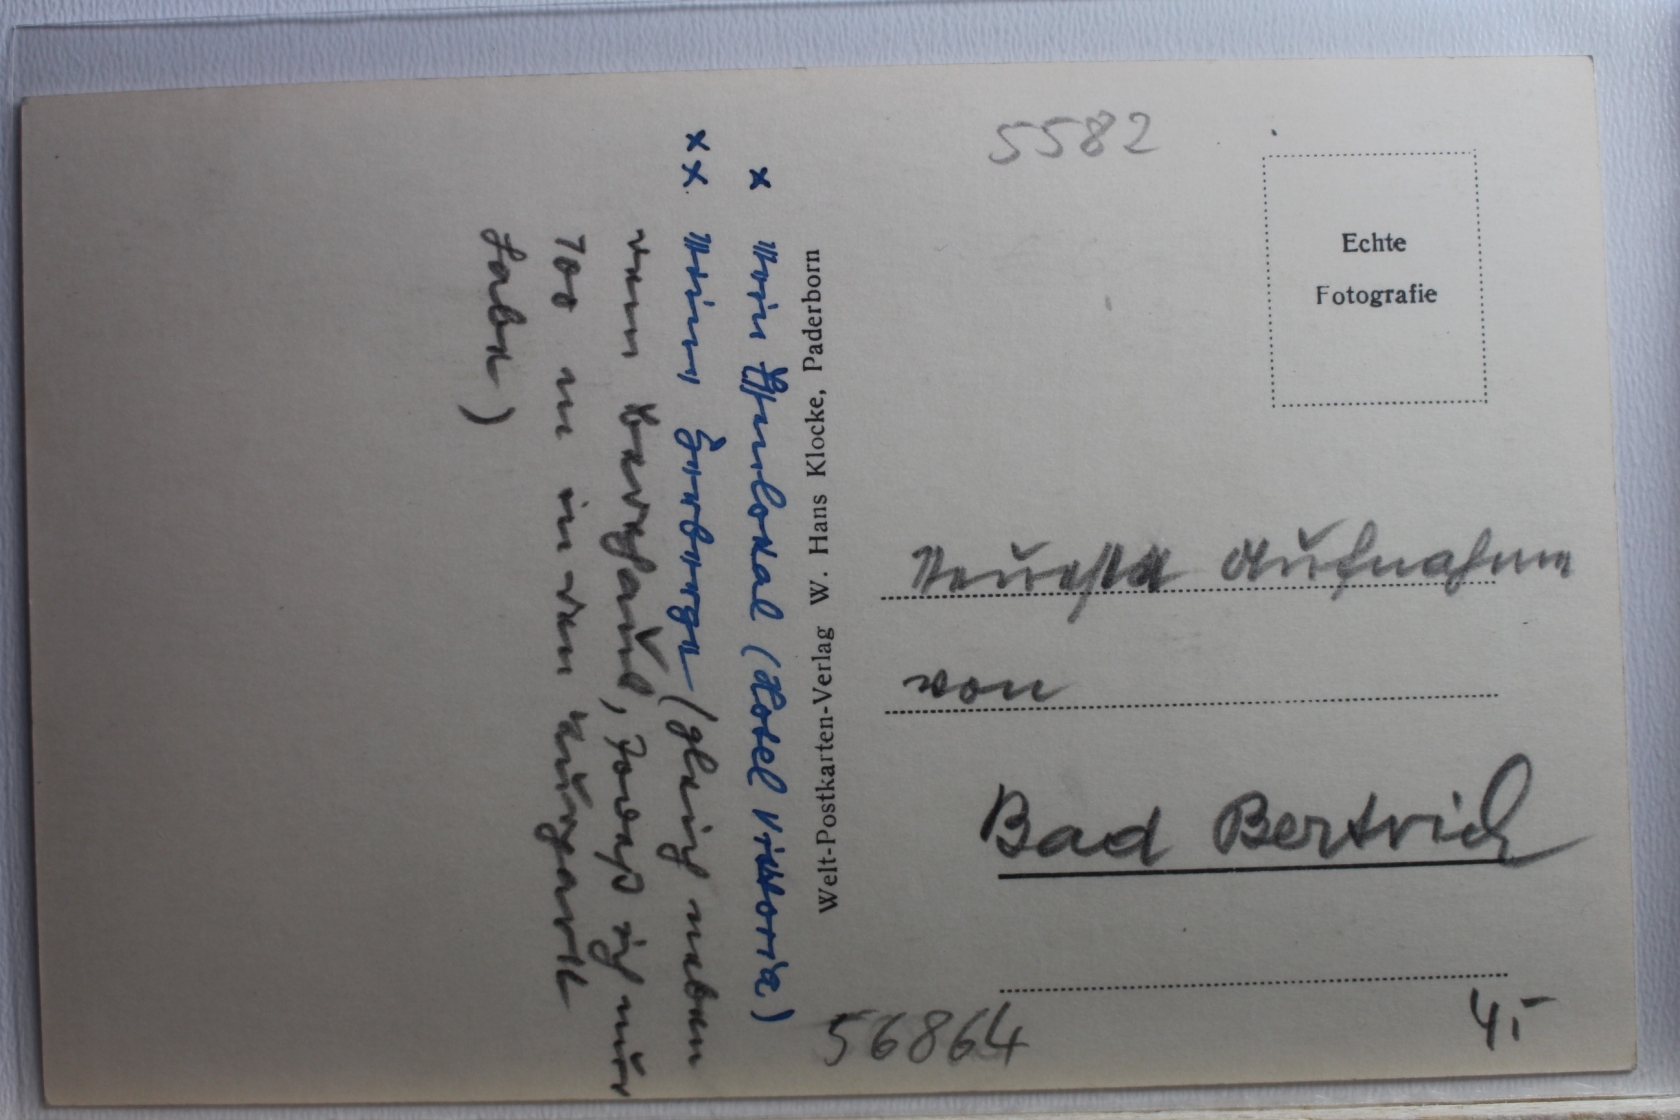 × Mein Eßlokal (Hotel Viktoria)
×× Meine Herberge (gleich neben
dem Badehaus, sodaß ich nur
100 m in den Kurpark
habe)
Welt-Postkarten-Verlag W. Hans Klocke, Paderborn
5582
Echte
Fotografie
Neueste Aufnahme
von
Bad Bertrich
56864
4,-